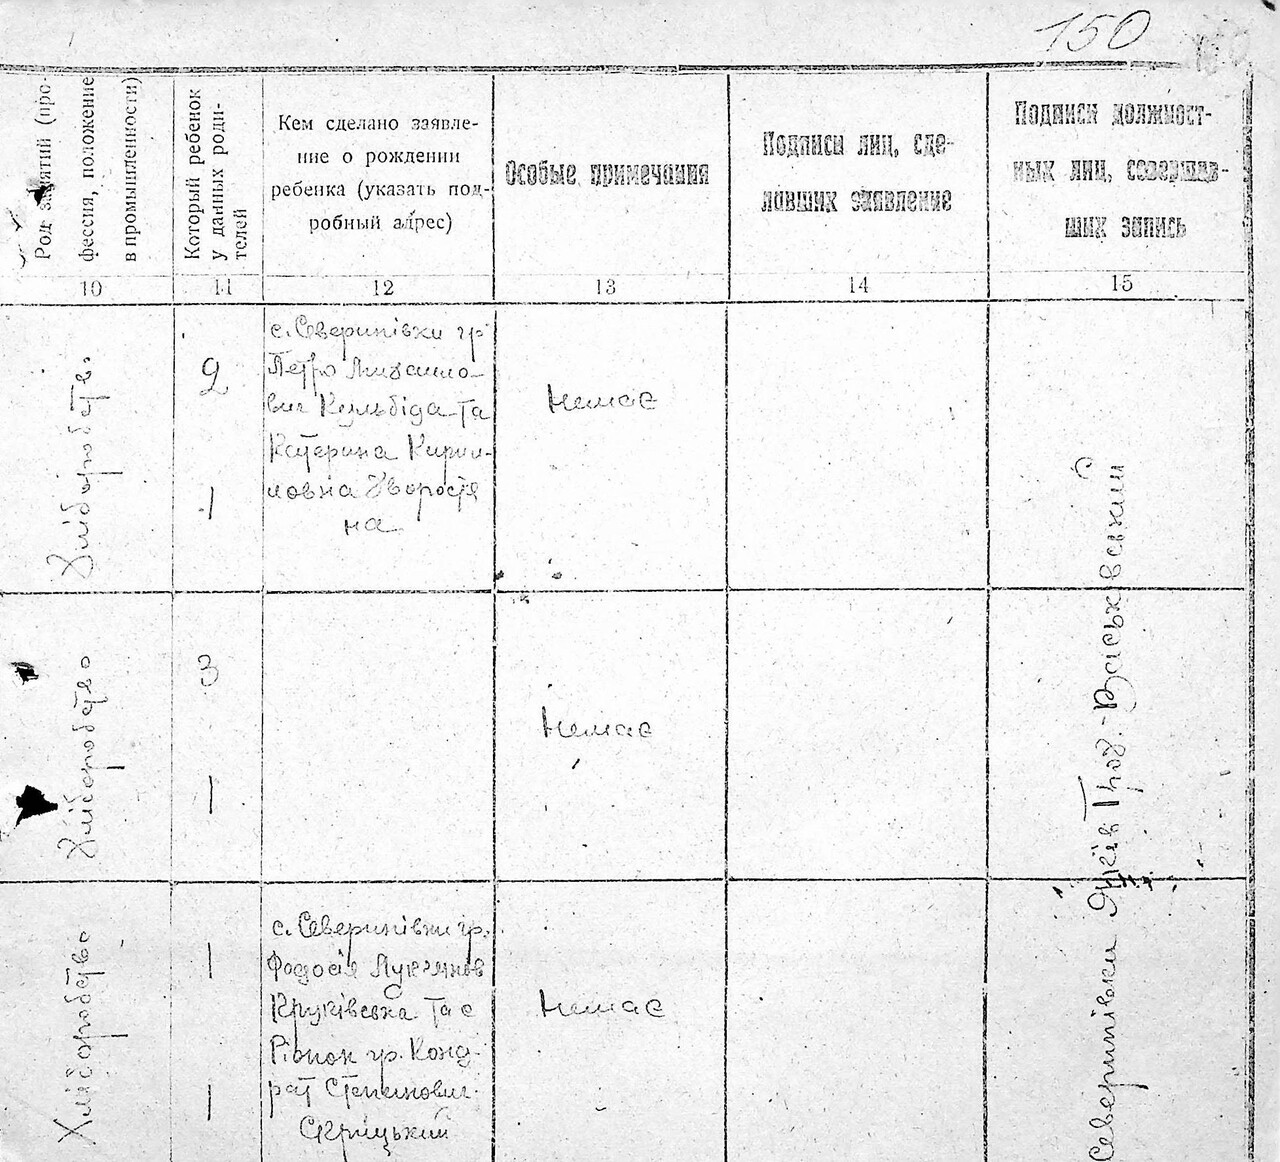 150
Род занятий (про-
фессия, положение
в промышленности)
Который ребенок
у данных роди-
телей
Кем сделано заявле-
ние о рождении
ребенка (указать под-
робный адрес)
Особые примечания
Подписи лиц, сде-
лавших заявление
Подписи должност-
ных лиц, совершав-
ших запись
10
11
12
13
14
15
Хліборобство
2
1
с. Северинівки гр
Петро Михайло-
вич Кульбіда та
Катерина Кирил-
ловна Хворостя
на
Немає
Хліборобство
3
1
Немає
Хліборобство
1
1
с. Северинівки гр.
Федосія Лукьянов
Круківська та с
гр. Конд-
рат Степанович
Немає
Северинівки Яків Васьківський